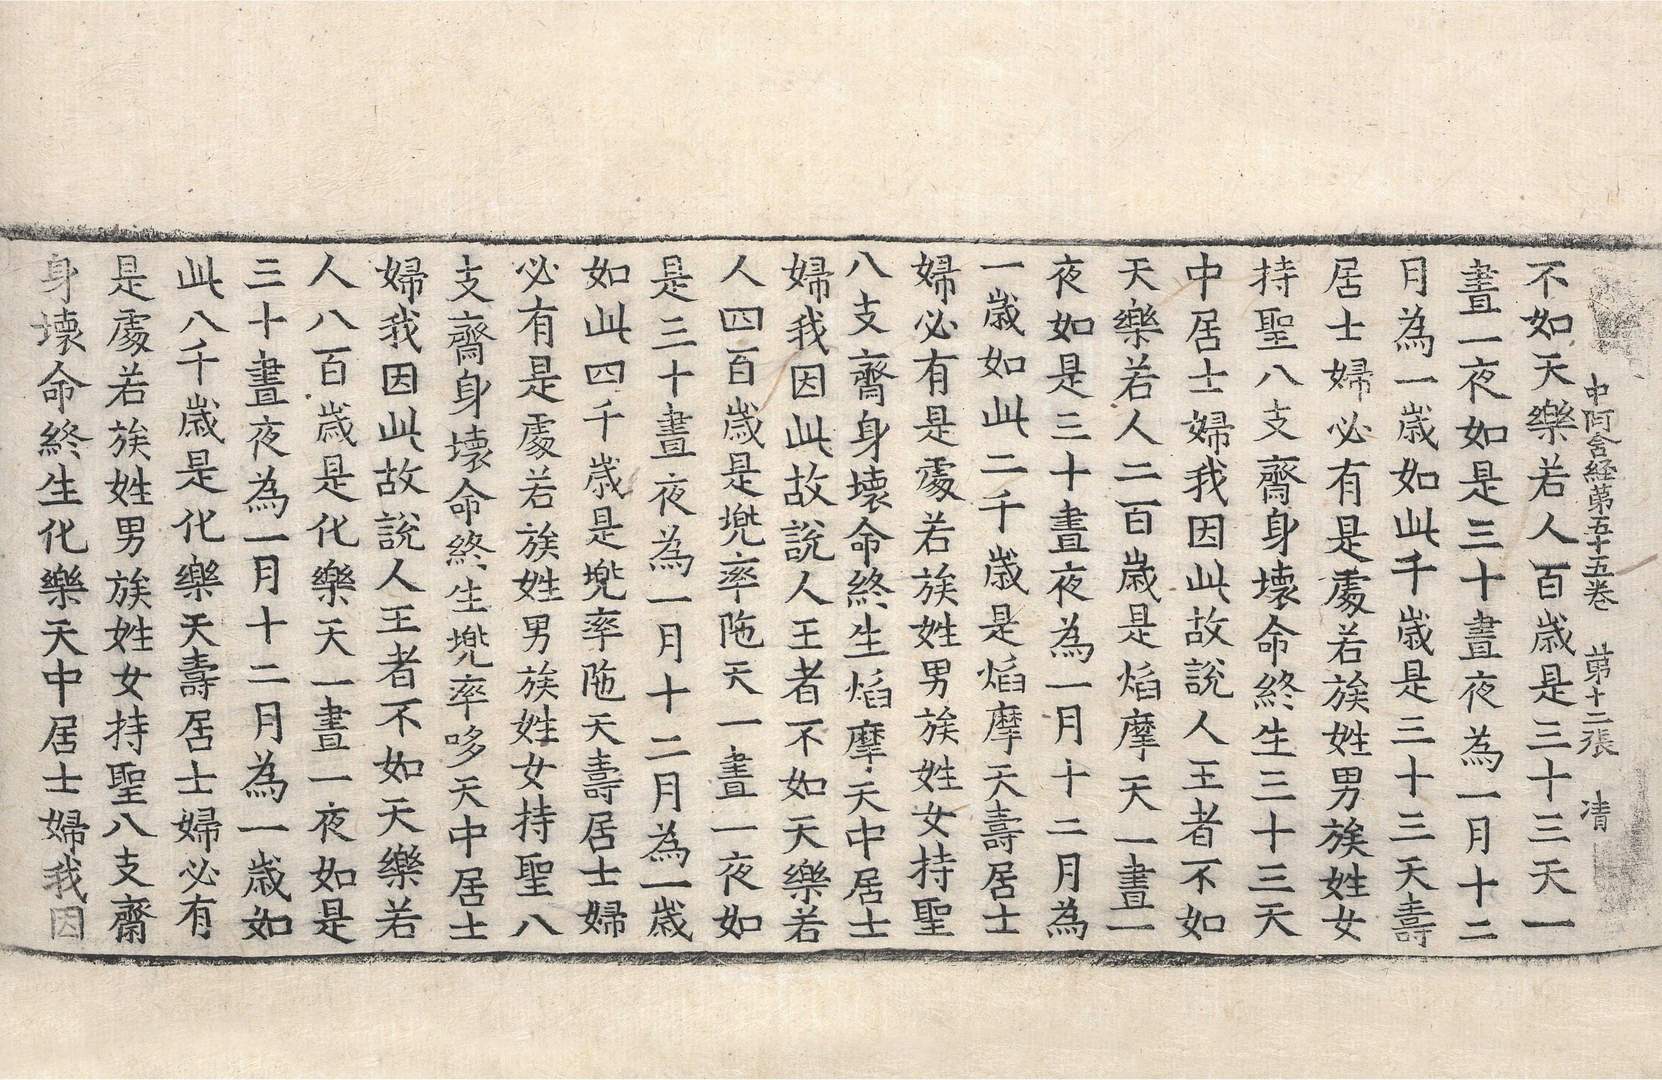 中阿含経第五十五卷 第十二張 凊
不如天樂若人百歲是三十三天一
晝一夜如是三十晝夜為一月十二
月為一歲如此千歲是三十三天壽
居士婦必有是處若族姓男族姓女
持聖八支齋身壞命終生三十三天
中居士婦我因此故說人王者不如
天樂若人二百歲是焰摩天一晝一
夜如是三十晝夜為一月十二月為
一歲如此二千歲是焰摩天壽居士
婦必有是處若族姓男族姓女持聖
八支齋身壞命終生焰摩天中居士
婦我因此故說人王者不如天樂若
人四百歲是兜率陁天一晝一夜如
是三十晝夜為一月十二月為一歲
如此四千歲是兜率陁天壽居士婦
必有是處若族姓男族姓女持聖八
支齋身壞命終生兜率哆天中居士
婦我因此故說人王者不如天樂若
人八百歲是化樂天一晝一夜如是
三十晝夜為一月十二月為一歲如
此八千歲是化樂天壽居士婦必有
是處若族姓男族姓女持聖八支齋
身壞命終生化樂天中居士婦我因